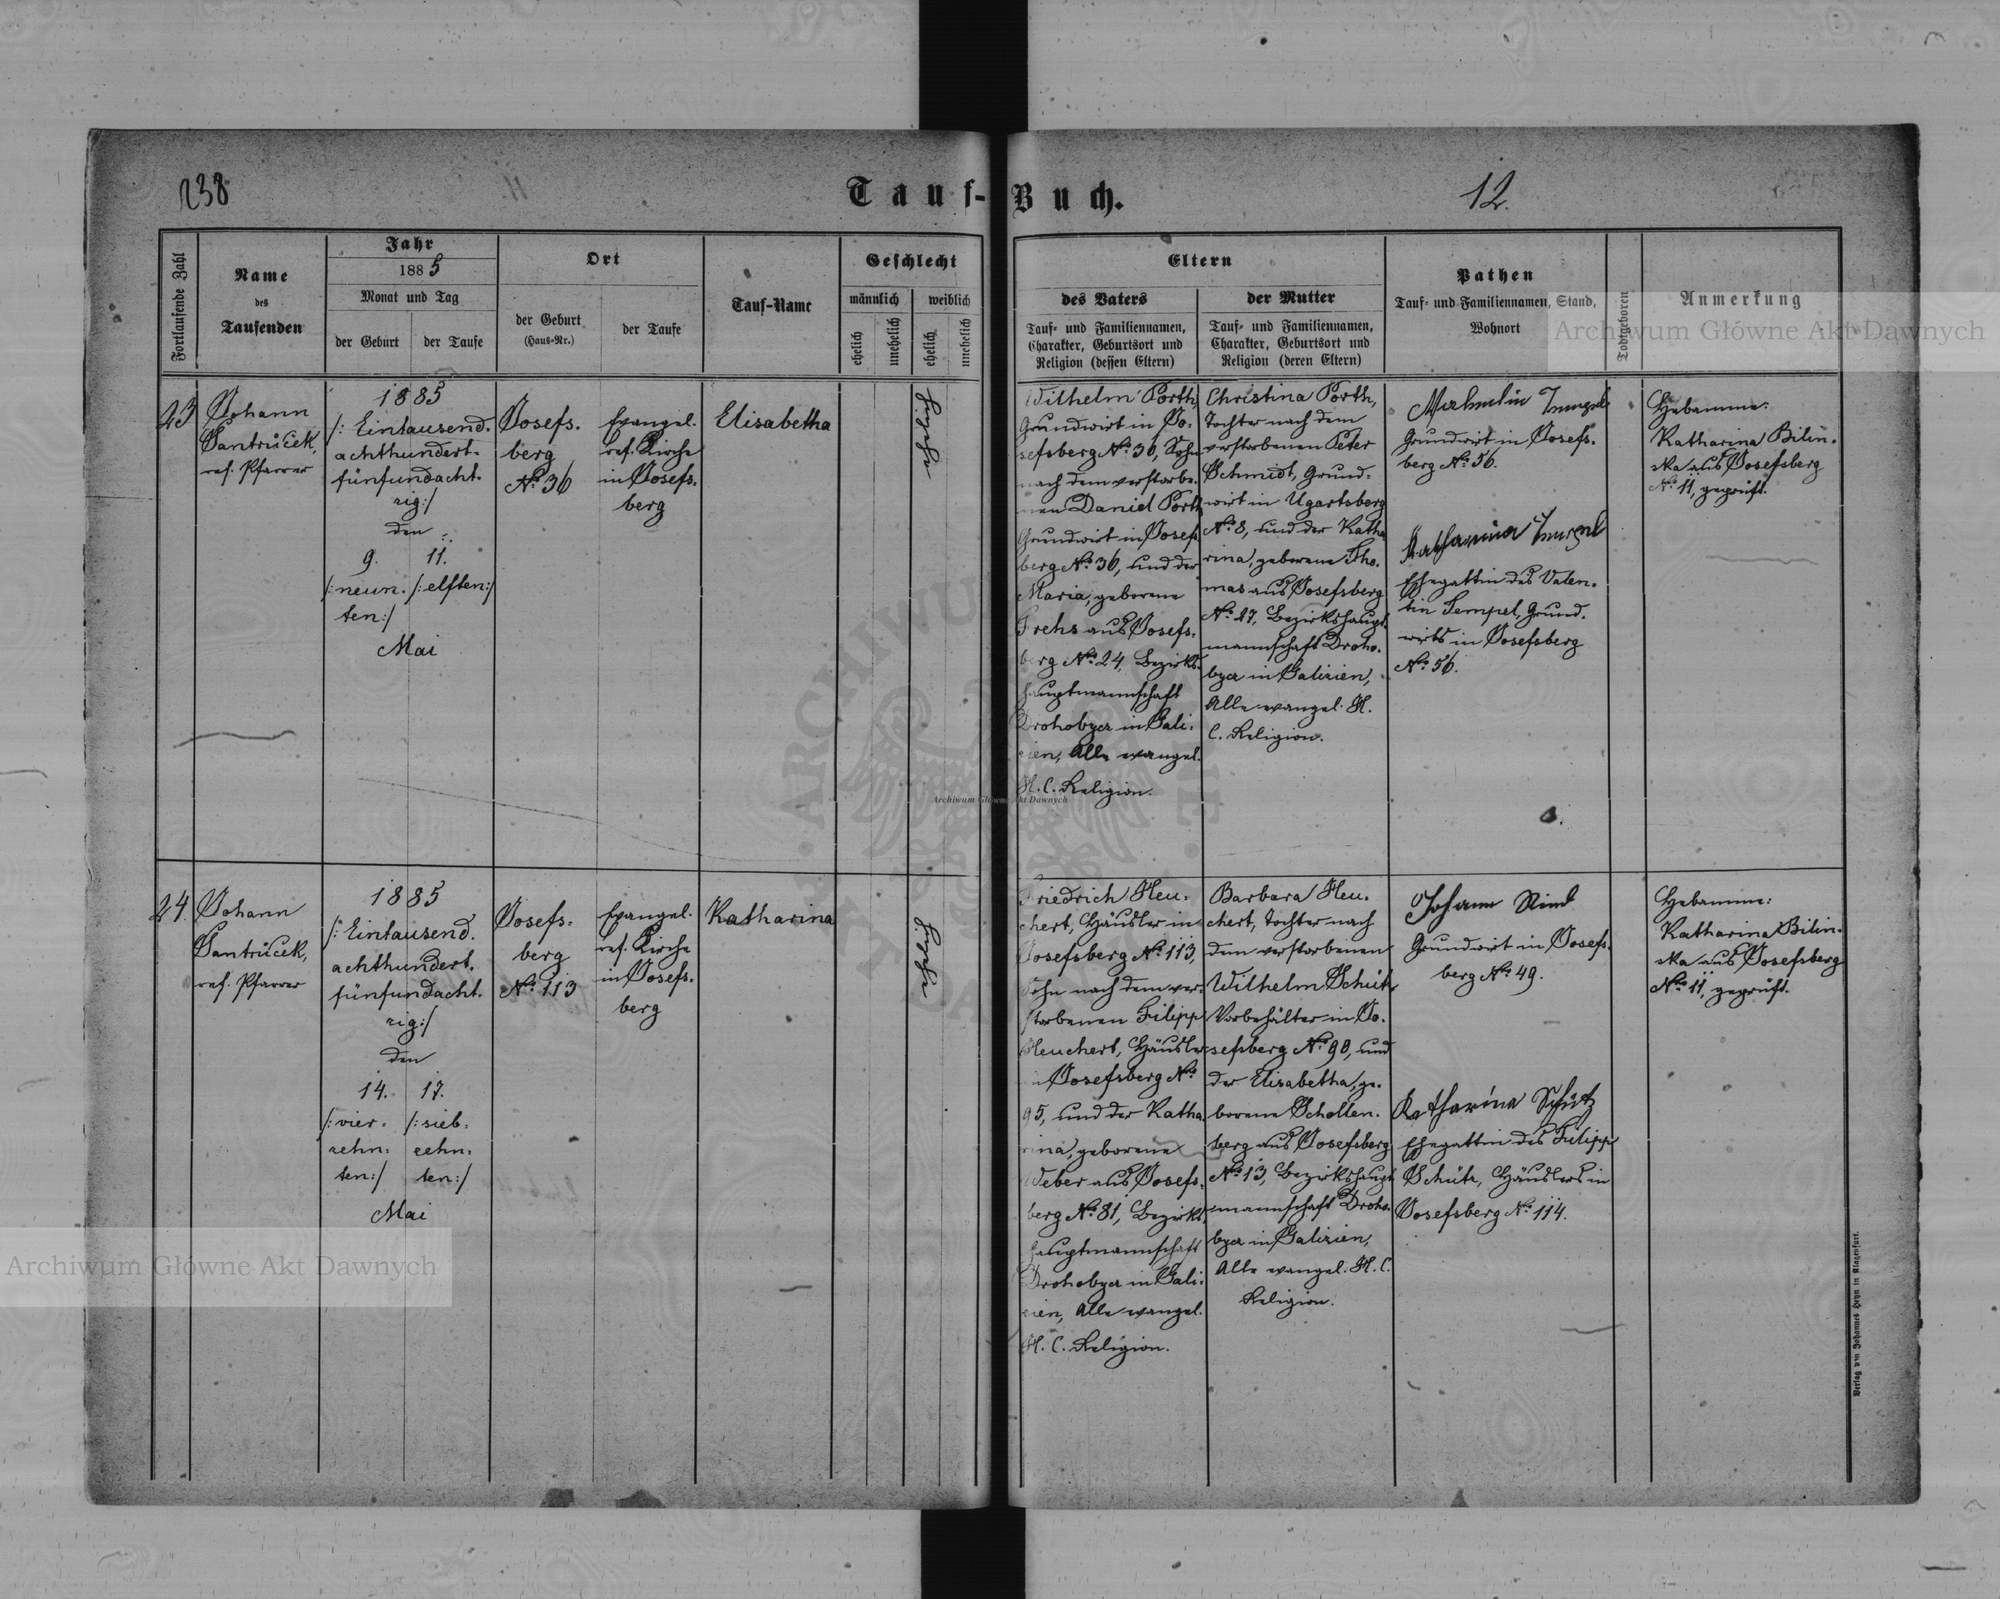 238
12.
Tauf-Buch.
Fortlaufende Zahl
Name
des
Taufenden
Jahr
1885
Monat und Tag
der Geburt
der Taufe
Ort
der Geburt
(Haus-Nr.)
der Taufe
Tauf-Name
Geschlecht
männlich
weiblich
ehelich
unehelich
ehelich
unehelich
Eltern
des Vaters
Tauf- und Familiennamen,
Charakter, Geburtsort und
Religion (dessen Eltern)
der Mutter
Tauf- und Familiennamen,
Charakter, Geburtsort und
Religion (deren Eltern)
Pathen
Tauf- und Familiennamen, Stand,
Wohnort
Todtgeboren
Anmerkung
23
Johann
Santrůček,
ref. Pfarrer
1885
/: Eintausend.
achthundert.
fünfundacht.
zig :/
den
9. 11.
/: neun. /: elften :/
ten :/
Mai
Josefs.
berg
No. 36
Evangel.
ref. Kirche
in Josefs.
berg
Elisabetha
Wilhelm Porth,
Grundwirt in Jo.
sefsberg No. 36, Sohn
nach dem verstorbe.
nen Daniel Porth
Grundwirt in Josefs
berg No. 36, und der
Maria, geborene
Frehs aus Josefs.
berg No. 24, Bezirks.
hauptmannschaft
Drohobycz in Gali.
zien, Alle evangel.
H. C. Religion.
Christina Porth,
Tochter nach dem
verstorbenen Peter
Schmidt, Grund.
wirt in Ugartsberg
No. 8, und der Katha
rina, geborene Tho.
mas aus Josefsberg
No. 27, Bezirkshaupt.
mannschaft Droho.
bycz in Galizien,
Alle evangel. H.
C. Religion.
Grundwirt in Josefs.
berg No. 56.
Katharina
Ehegattin des Valen.
tin Tempel, Grund.
wirts in Josefsberg
No. 56.
Hebamme:
Katharina Bilin.
ska aus Josefsberg
No. 11, geprüft.
24.
Johann
Santrůček,
ref. Pfarrer
1885
/: Eintausend.
achthundert.
fünfundacht.
zig :/
den
14. 17.
/: vier. /: sieb.
zehn. zehn.
ten :/ ten :/
Mai
Josefs.
berg
No. 113
Evangel.
ref. Kirche
in Josefs.
berg
Katharina
Friedrich Heu.
chert, Häusler in
Josefsberg No. 113,
Sohn nach dem ver.
storbenen Filipp
Heuchert, Häusler
in Josefsberg No.
95, und der Katha
rina, geborene
Weber aus Josefs.
berg No. 81, Bezirks.
hauptmannschaft
Drohobycz in Gali.
zien, Alle evangel.
H. C. Religion.
Barbara Heu.
chert, Tochter nach
dem verstorbenen
Wilhelm Schütz
Vorbehälter in Jo.
sefsberg No. 90, und
der Elisabetha, ge.
borene Schollen.
berg aus Josefsberg
No. 13, Bezirkshaupt
mannschaft Droho.
bycz in Galizien,
Alle evangel. H. C.
Religion.
Johann
Grundwirt in Josefs.
berg No. 49.
Katharina Schütz
Ehegattin des Filipp
Schütz, Häuslers in
Josefsberg No. 114.
Hebamme:
Katharina Bilin.
ska aus Josefsberg
No. 11, geprüft.
Verlag von Johannes Heyn in Klagenfurt.
Archiwum Główne Akt Dawnych
Archiwum Główne Akt Dawnych
Archiwum Główne Akt Dawnych